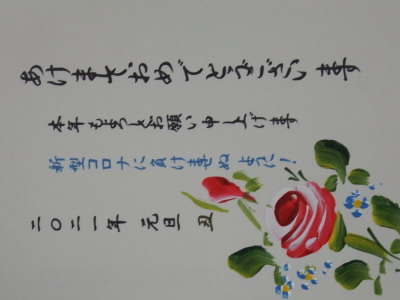 あけましておめでとうございます
本年もよろしくお願い申し上げます
新型コロナに負けませぬように!
二〇二一年 元旦 丑